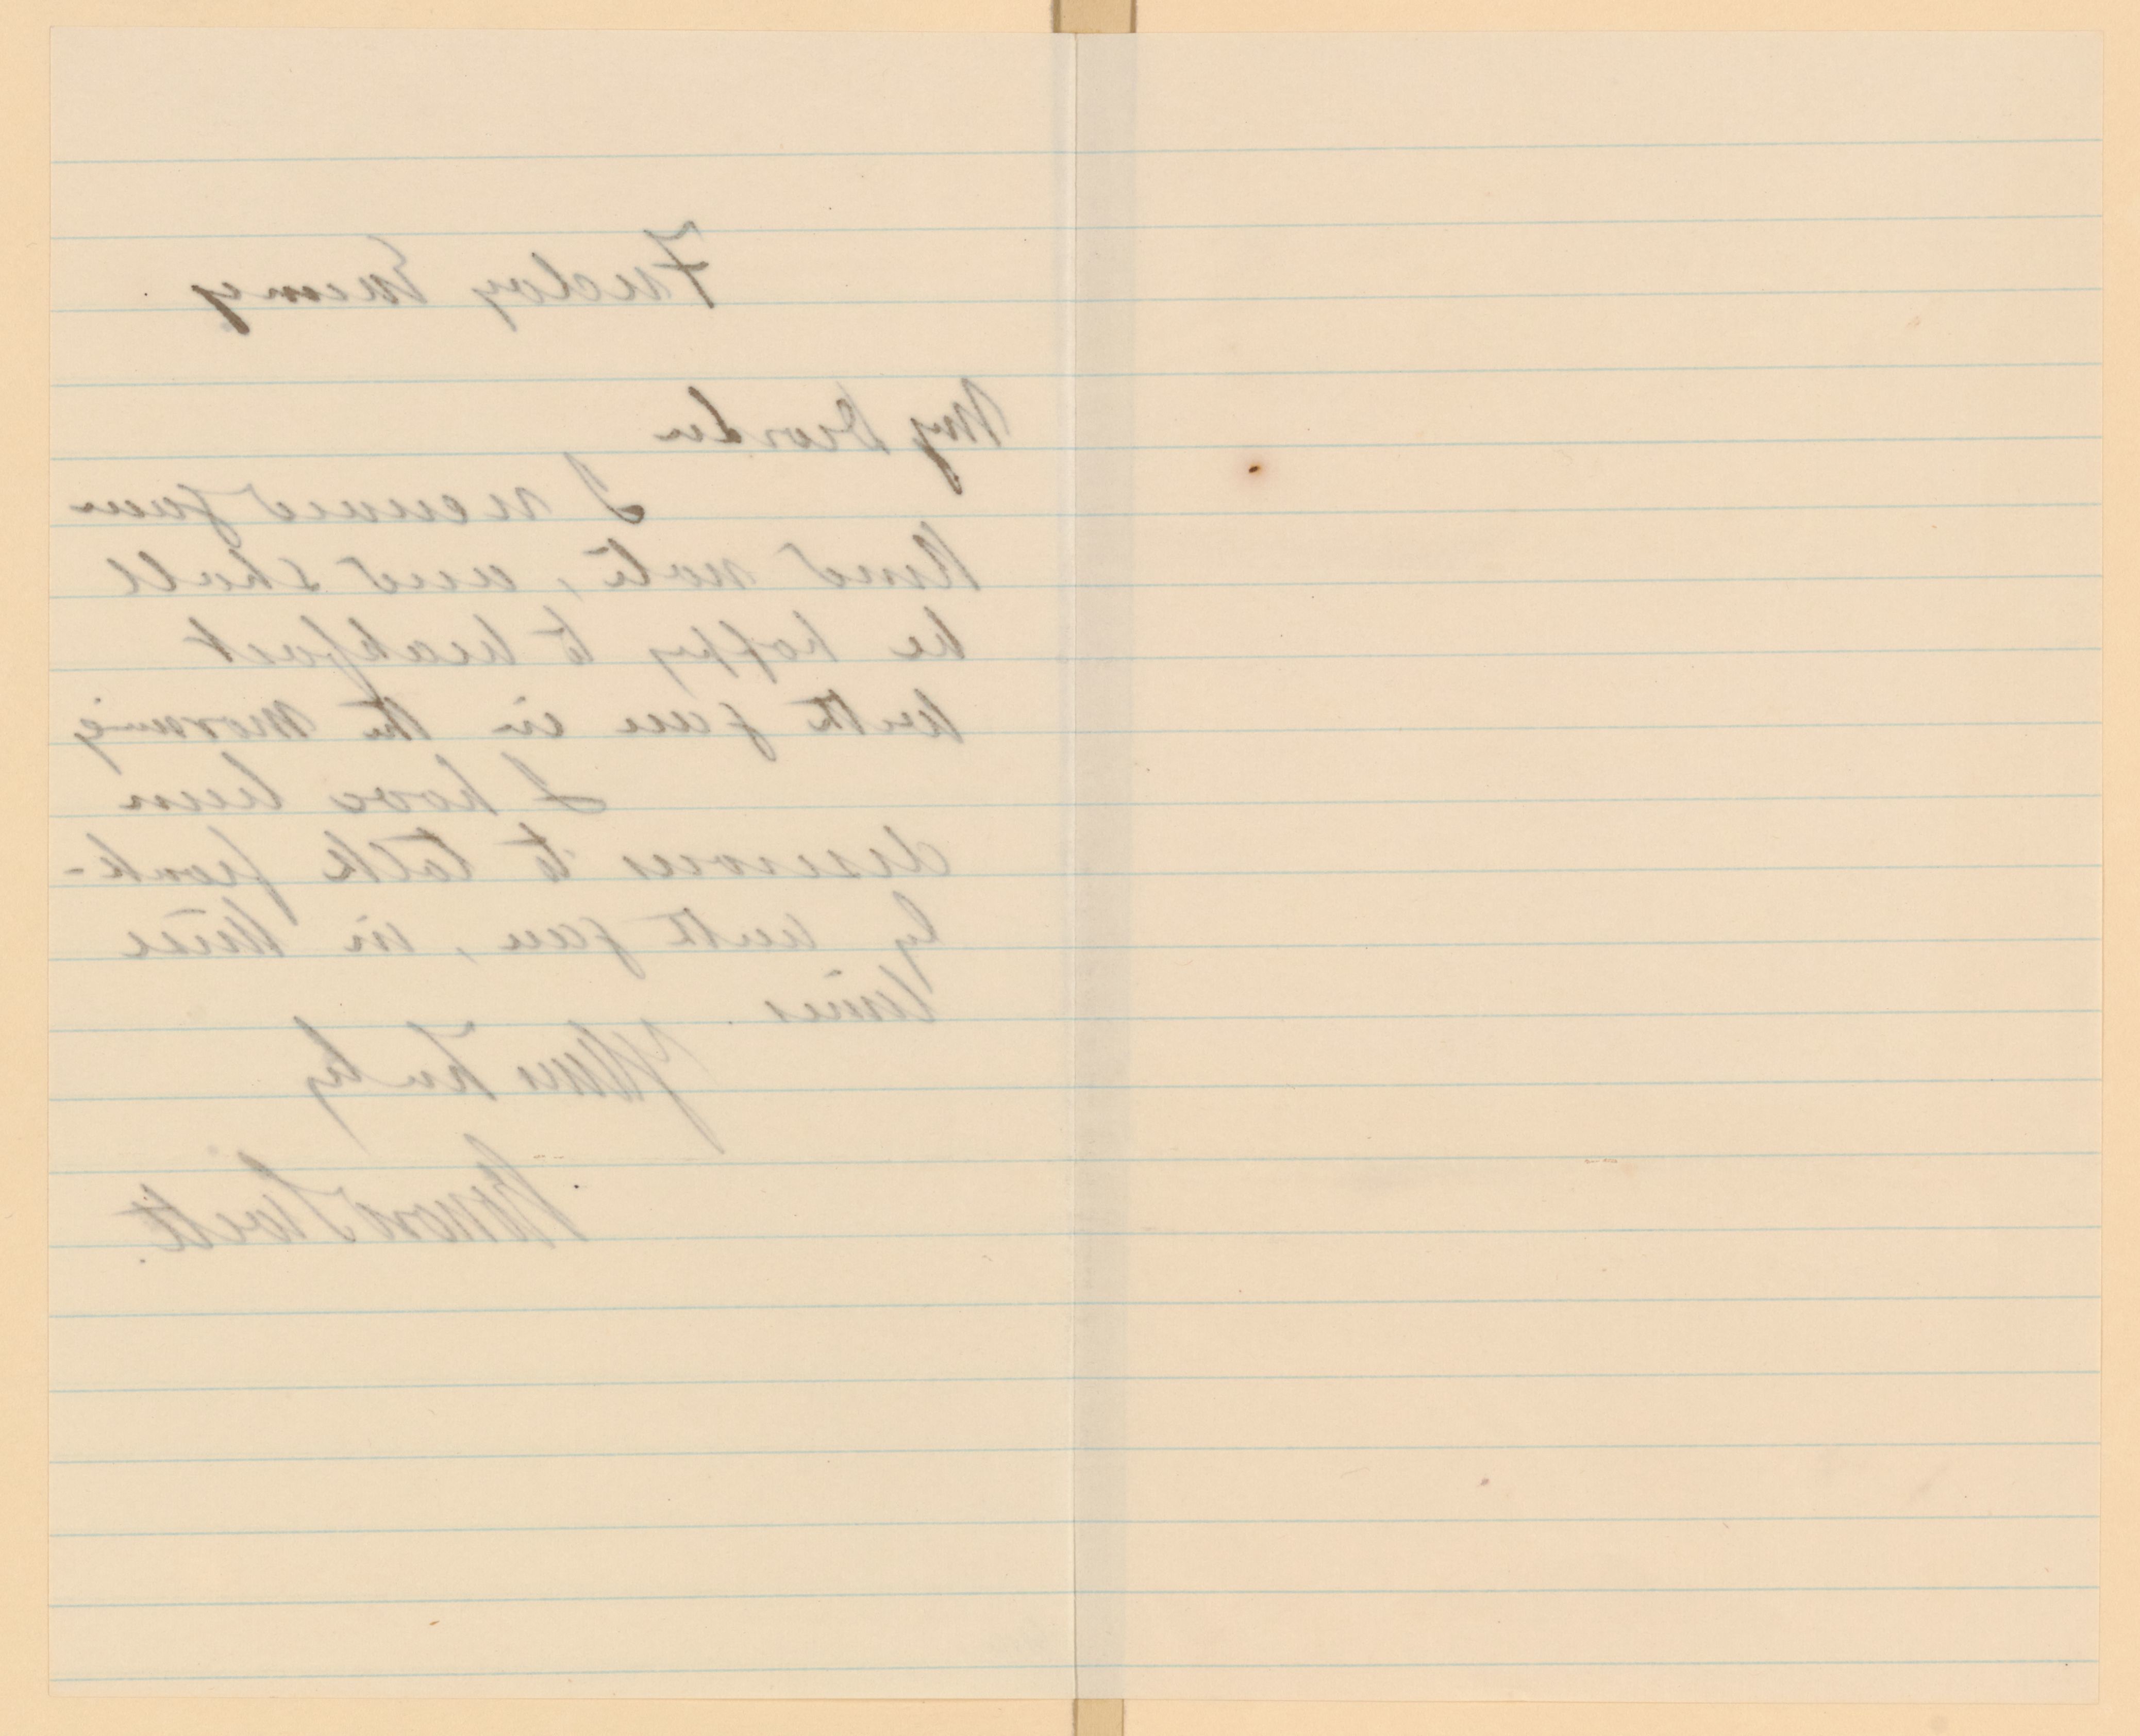 Friday Evening
My Dear Sir
I received your
kind note, and shall
be happy to breakfast
with you in the morning
I have been
desirous to talk frank-
ly with you, in
times.
Yours Truly
Leonard Swett.